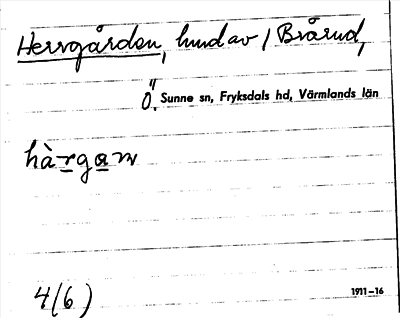 Herrgården, hund av / Brårud,
Ö. Sunne sn, Fryksdals hd, Värmlands län
hàrgaṃ
4(6)
1911-16